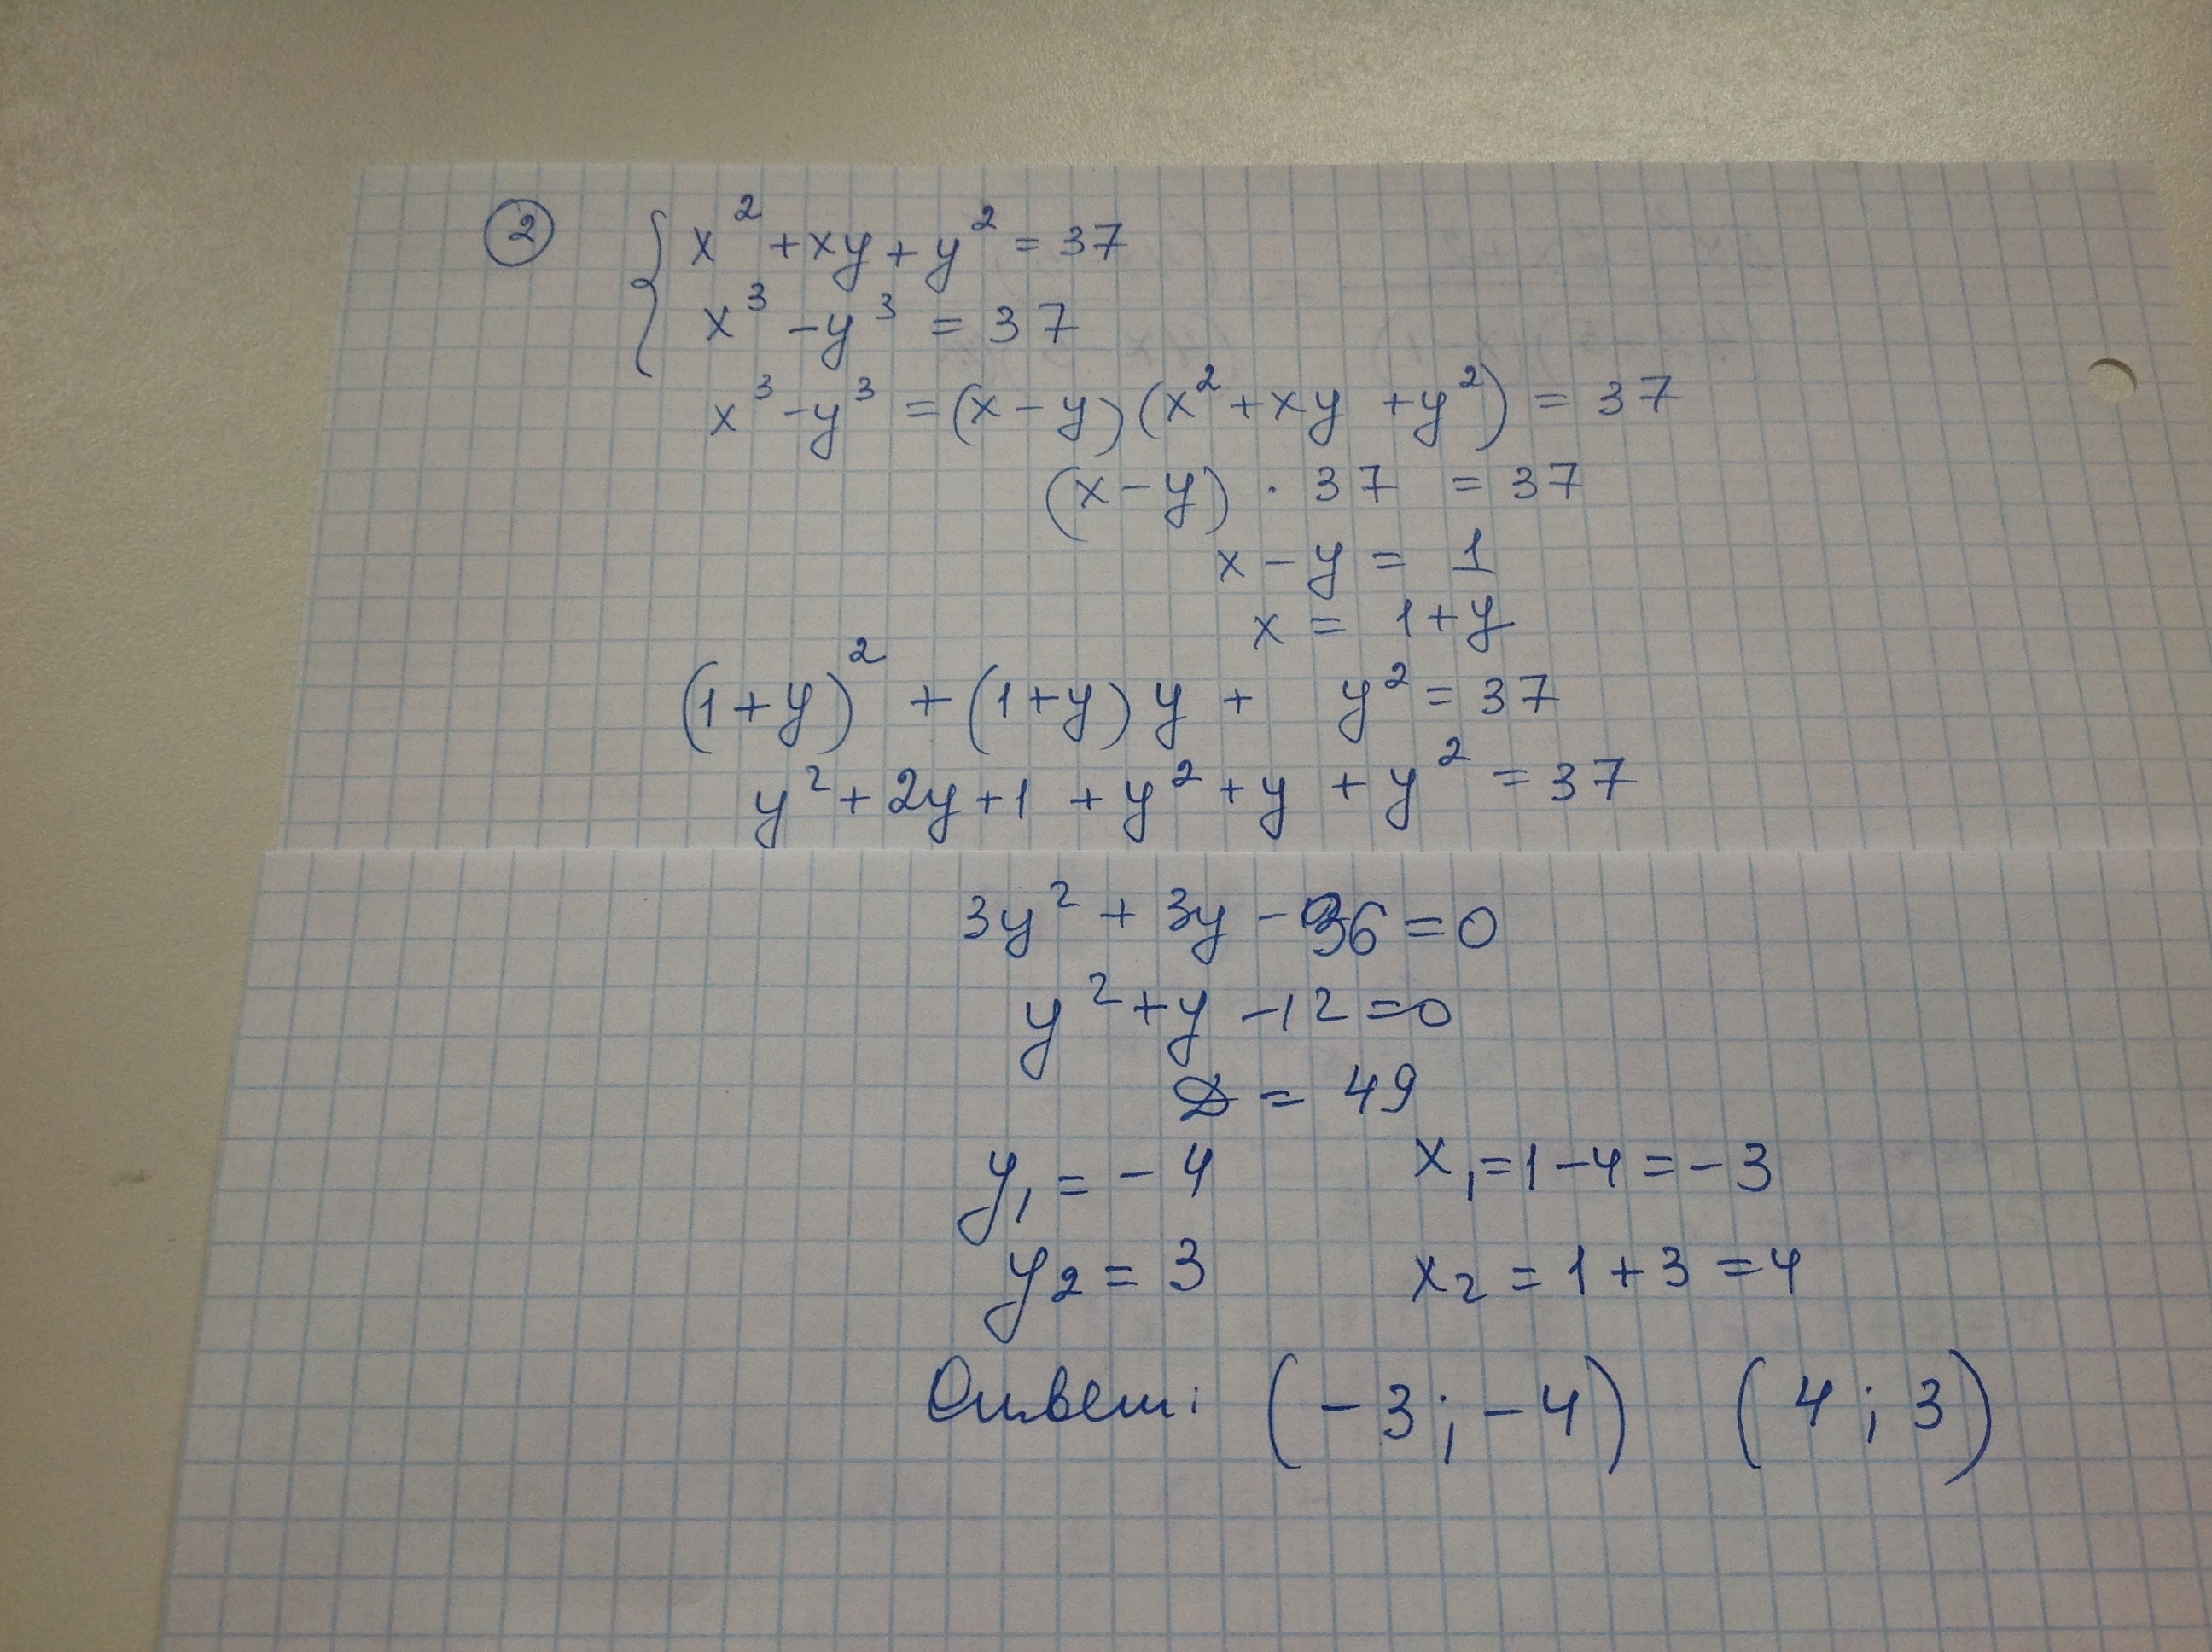 2
x² + xy + y² = 37
x³ - y³ = 37
x³ - y³ = (x - y)(x² + xy + y²) = 37
(x - y) · 37 = 37
x - y = 1
x = 1 + y
(1 + y)² + (1 + y) y + y² = 37
y² + 2y + 1 + y² + y + y² = 37
3y² + 3y - 36 = 0
y² + y - 12 = 0
D = 49
y₁ = - 4 x₁ = 1 - 4 = - 3
y₂ = 3 x₂ = 1 + 3 = 4
Ответ: (-3; -4) (4; 3)